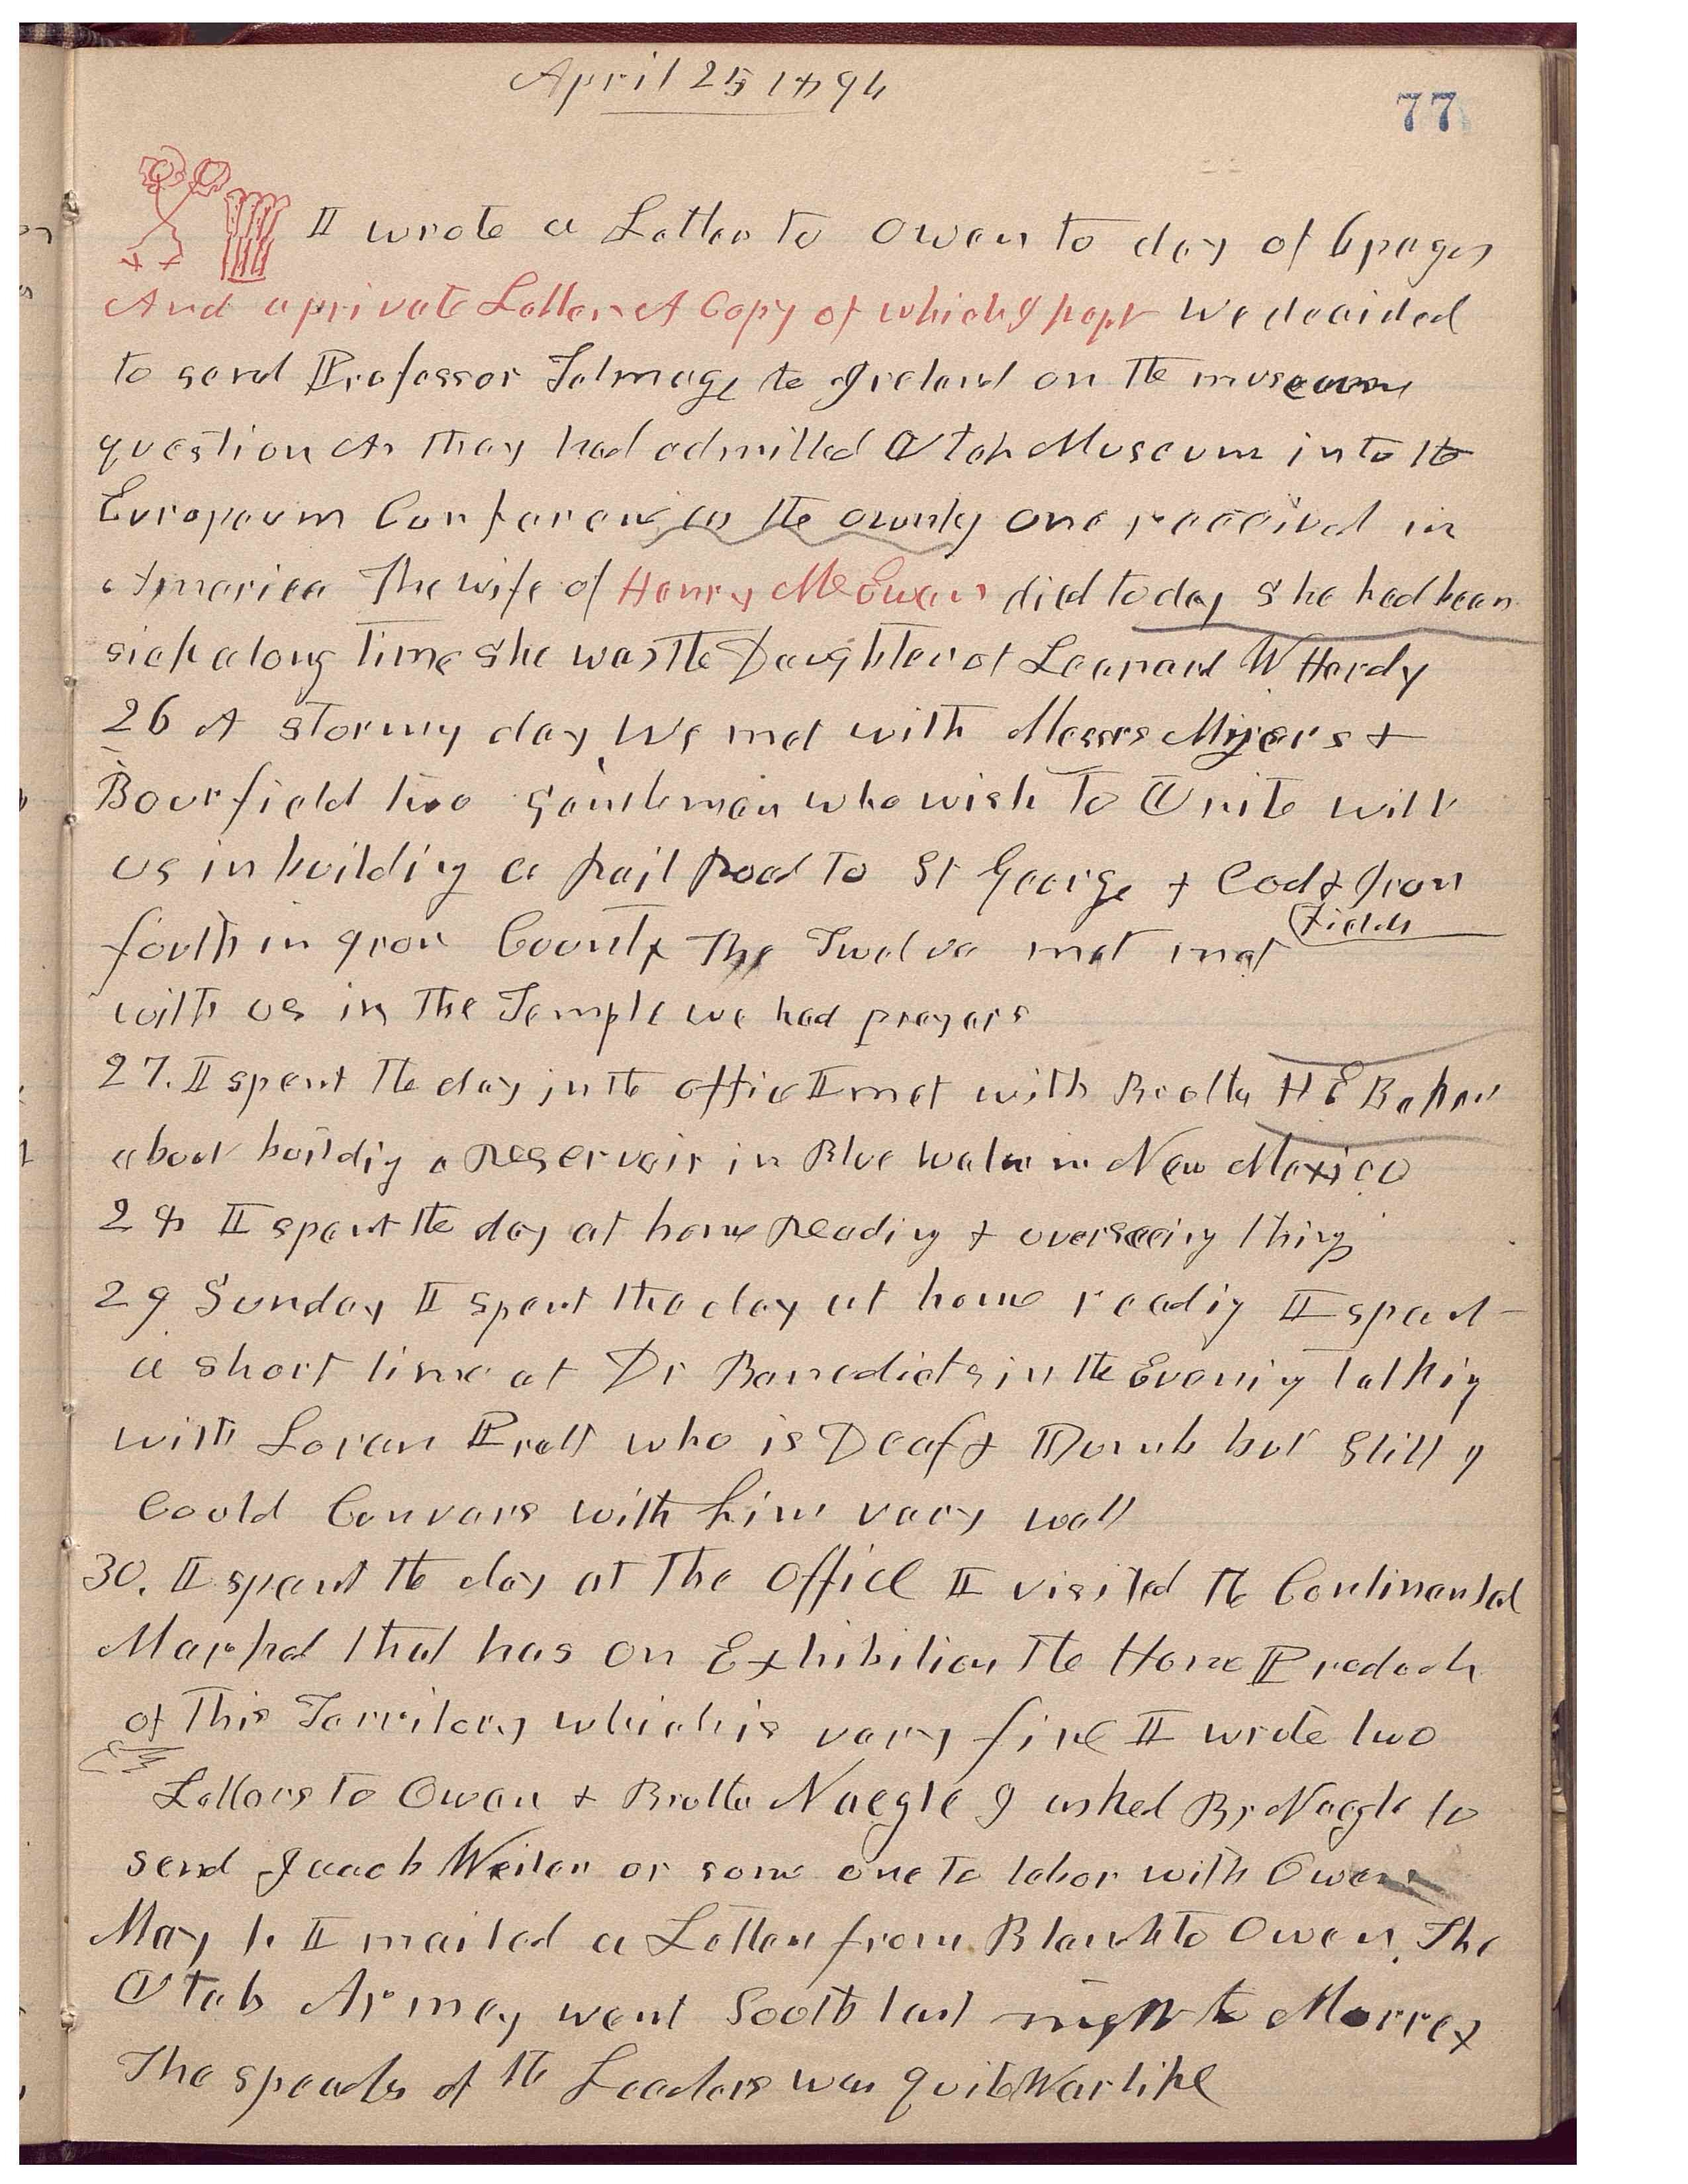 April 25 1894
77
I wrote a Letter to Owen to day of 6 pages
And a private Letter A Copy of which I kept We decided
to send Professor Talmage to Ireland on the museum
question As they had admitted Utah Museum into the
Europeum Conference as the ownly one received in
America The wife of Henry McEwen died today She had been
sick along time She was the Daughter of Leonard W Hardy
26 A stormy day We met with Messrs Myers &
Bourfield two gentlemen who wish to Unite with
us in building a Rail Road to St George & Coal & Iron
Fields
South in Iron County The Twelve met met
with us in the Temple we had prayers
27. I spent the day in the office I met with Brother H E Baker
about buildig a Reservoir in Blue Water in New Mexico
28 I spent the day at home Reading & overseeing things
29 Sunday I spent the day at home readig I spent
a short time at Dr Benedicts in the Evenig talkig
with Loran Pratt who is Deaf & Dumb but still I
Could Convers with him very well
30. I spent the day at the office I visited the Continental
Market that has on Exhibition the Home Products
of this Territory which is very fine I wrote two
Letters to Owen & Brother Naegle I asked Br Naegle to
send Jacob Weiler or some one to labor with Owen
May 1. I mailed a Letter from Blanch to Owen. The
Utah Armey went South last night to Murrey
The speeches of the Leaders was quite Warlike